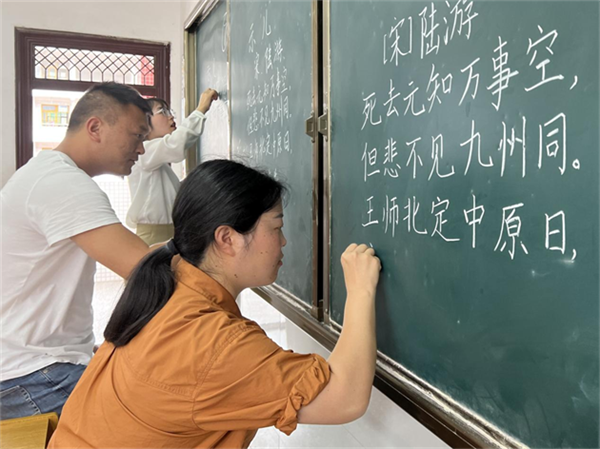 示儿
宋 陆游
死去元知万事空,
但悲不见九州同。
北定中原日
[宋]陆游
死去元知万事空,
但悲不见九州同。
王师北定中原日,